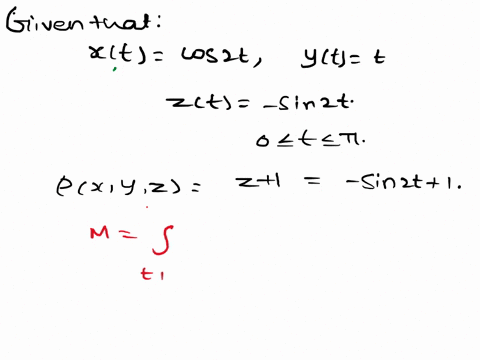 Given that:
x(t) = cos2t, y(t) = t
z(t) = -sin2t.
0 ≤ t ≤ π.
ρ(x, y, z) = z+1 = -sin2t+1.
M = ∫
t1